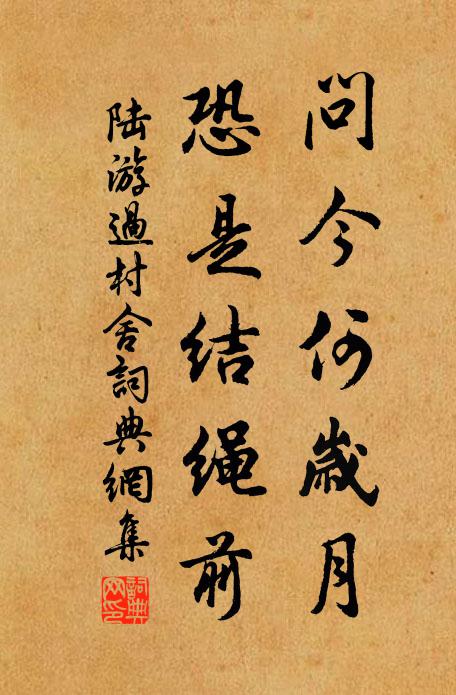 问今何歲月
恐是结绳前
陆游過村舍詞典網集
詞典网印